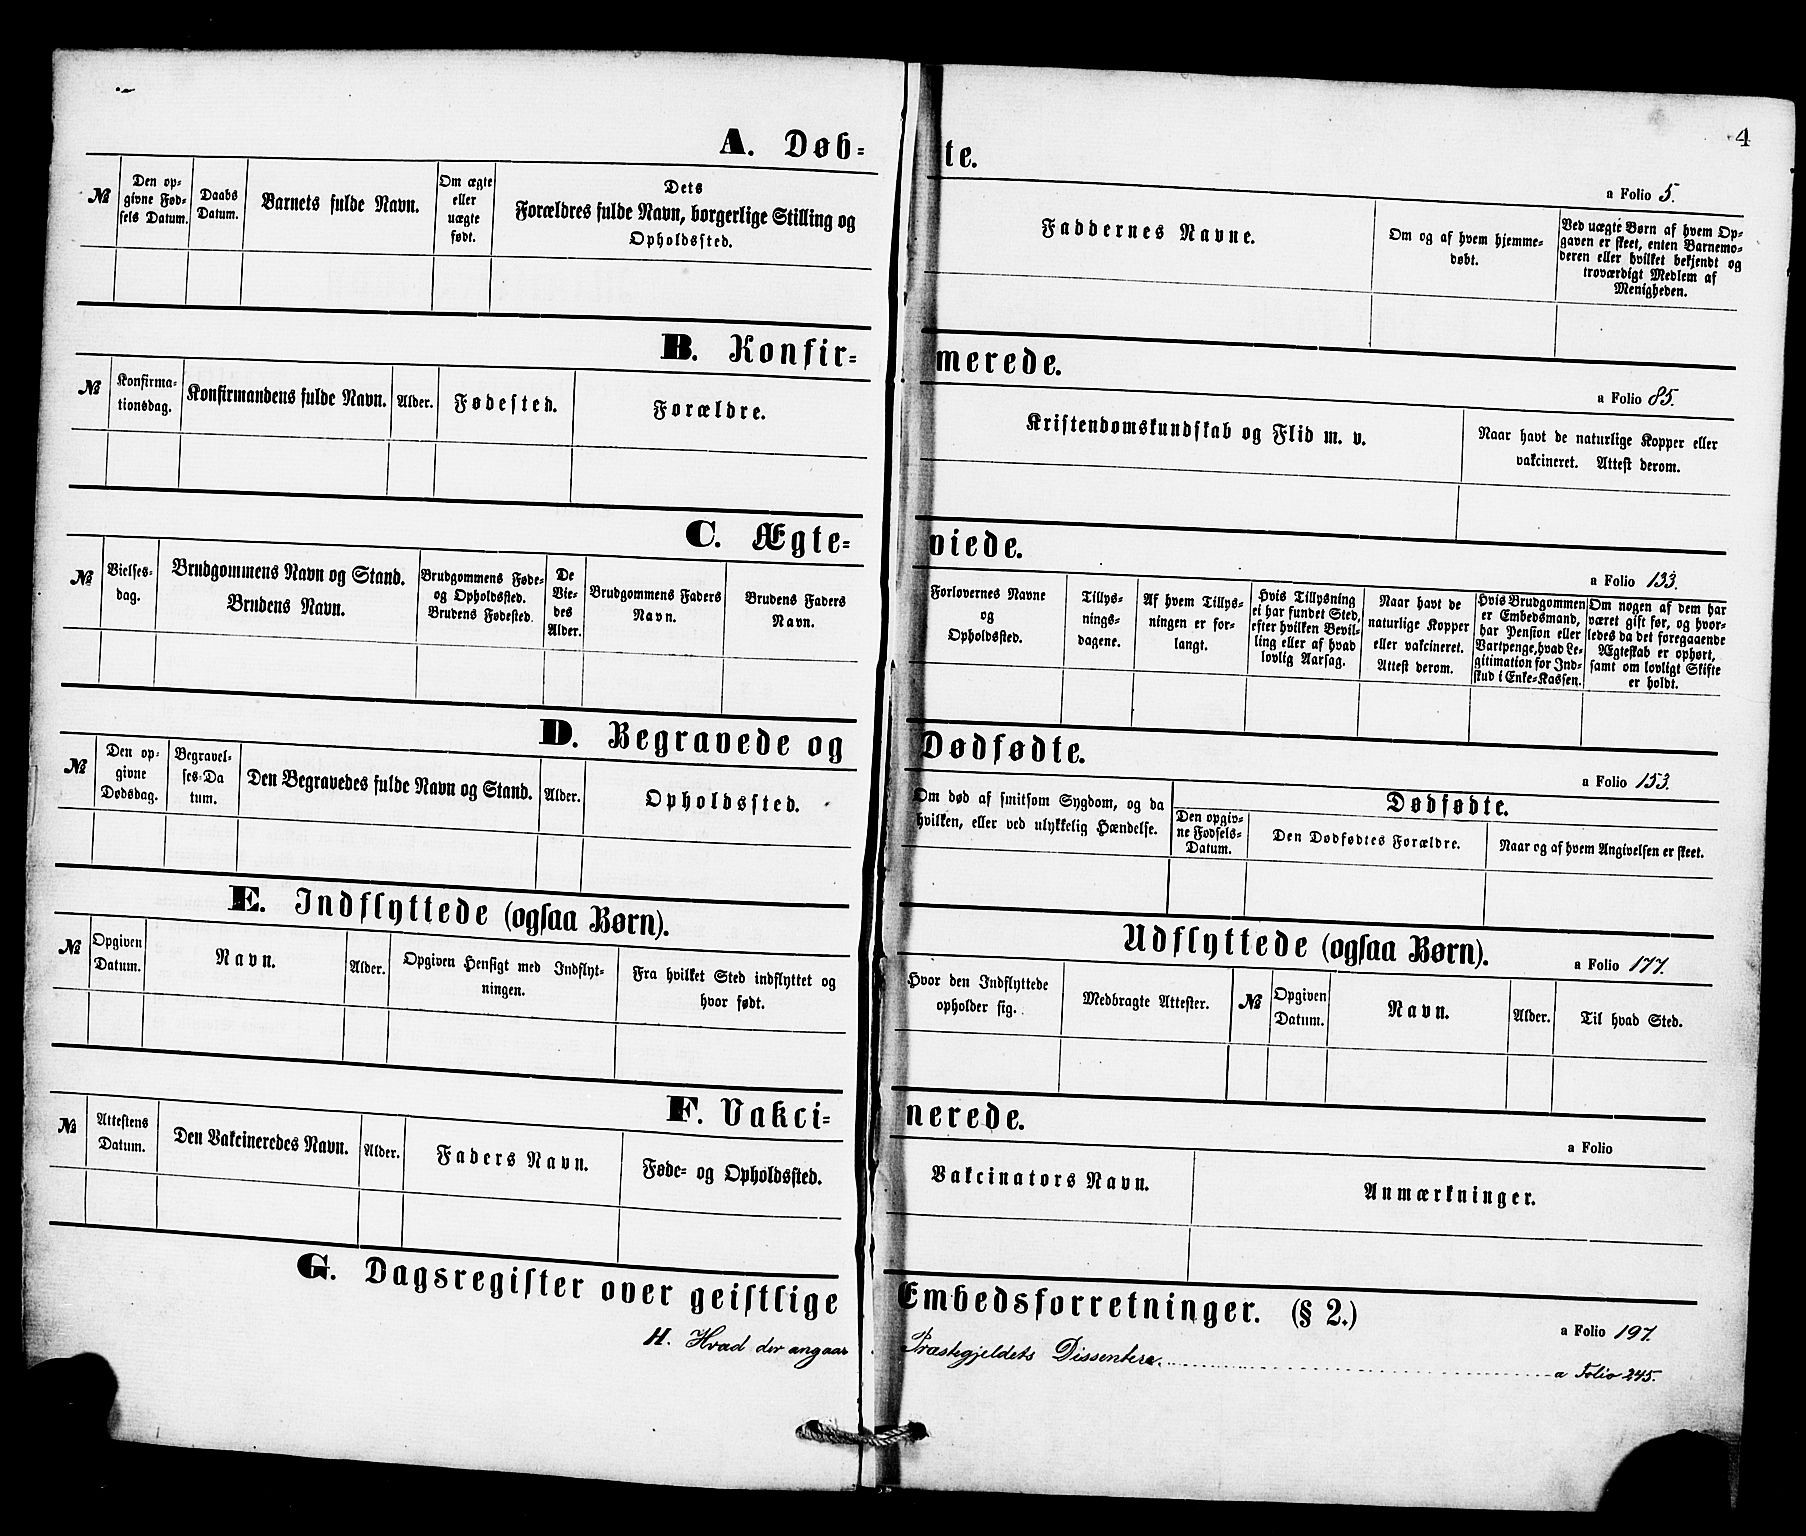 4
A. Døbte.
a Folio 5.
№
Den op-
givne Fød-
sels Datum.
Daabs
Datum.
Barnets fulde Navn.
Om ægte
eller
uægte
født.
Dets
Forældres fulde Navn, borgerlige Stilling og
Opholdssted.
Faddernes Navne.
Om og af hvem hjemme-
døbt.
Ved uægte Børn af hvem Op-
gaven er skeet, enten Barnemo-
deren eller hvilket bekjendt og
troværdigt Medlem af
Menigheden.
B. Konfir-
merede.
a Folio 85.
№
Konfirma-
tionsdag.
Konfirmandens fulde Navn.
Alder.
Fødested.
Forældre.
Kristendomskundskab og Flid m. v.
Naar havt de naturlige Kopper eller
vakcineret. Attest derom.
C. Ægte-
viede.
a Folio 133.
№
Vielses-
dag.
Brudgommens Navn og Stand.
Brudens Navn.
Brudgommens Føde-
og Opholdssted.
Brudens Fødested.
De
Vie-
des
Alder.
Brudgommens Faders
Navn.
Brudens Faders
Navn.
Forlovernes Navne
og
Opholdssted.
Tillys-
nings-
dagene.
Af hvem Tillys-
ningen er for-
langt.
Hvis Tillysning
ei har fundet Sted,
efter hvilken Bevil-
ling eller af hvad
lovlig Aarsag.
Naar havt de
naturlige Kopper
eller vakcineret.
Attest derom.
Hvis Brudgommen
er Embedsmand,
har Pension eller
Vartpenge, hvad Le-
gitimation for Ind-
skud i Enke-Kassen.
Om nogen af dem har
været gift før, og hvor-
ledes da det foregaaende
Ægteskab er ophørt,
samt om lovligt Skifte
er holdt.
D. Begravede og
Dødfødte.
a Folio 153.
№
Den op-
givne
Dødsdag.
Begravel-
ses-Da
tum.
Den Begravedes fulde Navn og Stand.
Alder.
Opholdssted.
Om død af smitsom Sygdom, og da
hvilken, eller ved ulykkelig Hændelse.
Dødfødte.
Den opgiv-
ne Fødsels-
Datum.
Den Dødfødtes Forældre.
Naar og af hvem Angivelsen er skeet.
E. Indflyttede (ogsaa Børn).
Udflyttede (ogsaa Børn).
a Folio 177.
№
Opgiven
Datum.
Navn.
Alder.
Opgiven Hensigt med Indflyt-
ningen.
Fra hvilket Sted indflyttet og
hvor født.
Hvor den Indflyttede
opholder sig.
Medbragte Attester.
№
Opgiven
Datum.
Navn.
Alder.
Til hvad Sted.
F. Vakci-
nerede.
a Folio
№
Attestens
Datum.
Den Vakcineredes Navn.
Alder.
Faders Navn.
Føde- og Opholdssted.
Vakcinators Navn.
Anmærkninger.
G. Dagsregister over geistlige
Embedsforretninger. (§ 2.)
a Folio 197.
H. Hvad der angaar Præstegjeldets Dissentere. a Folio 245.